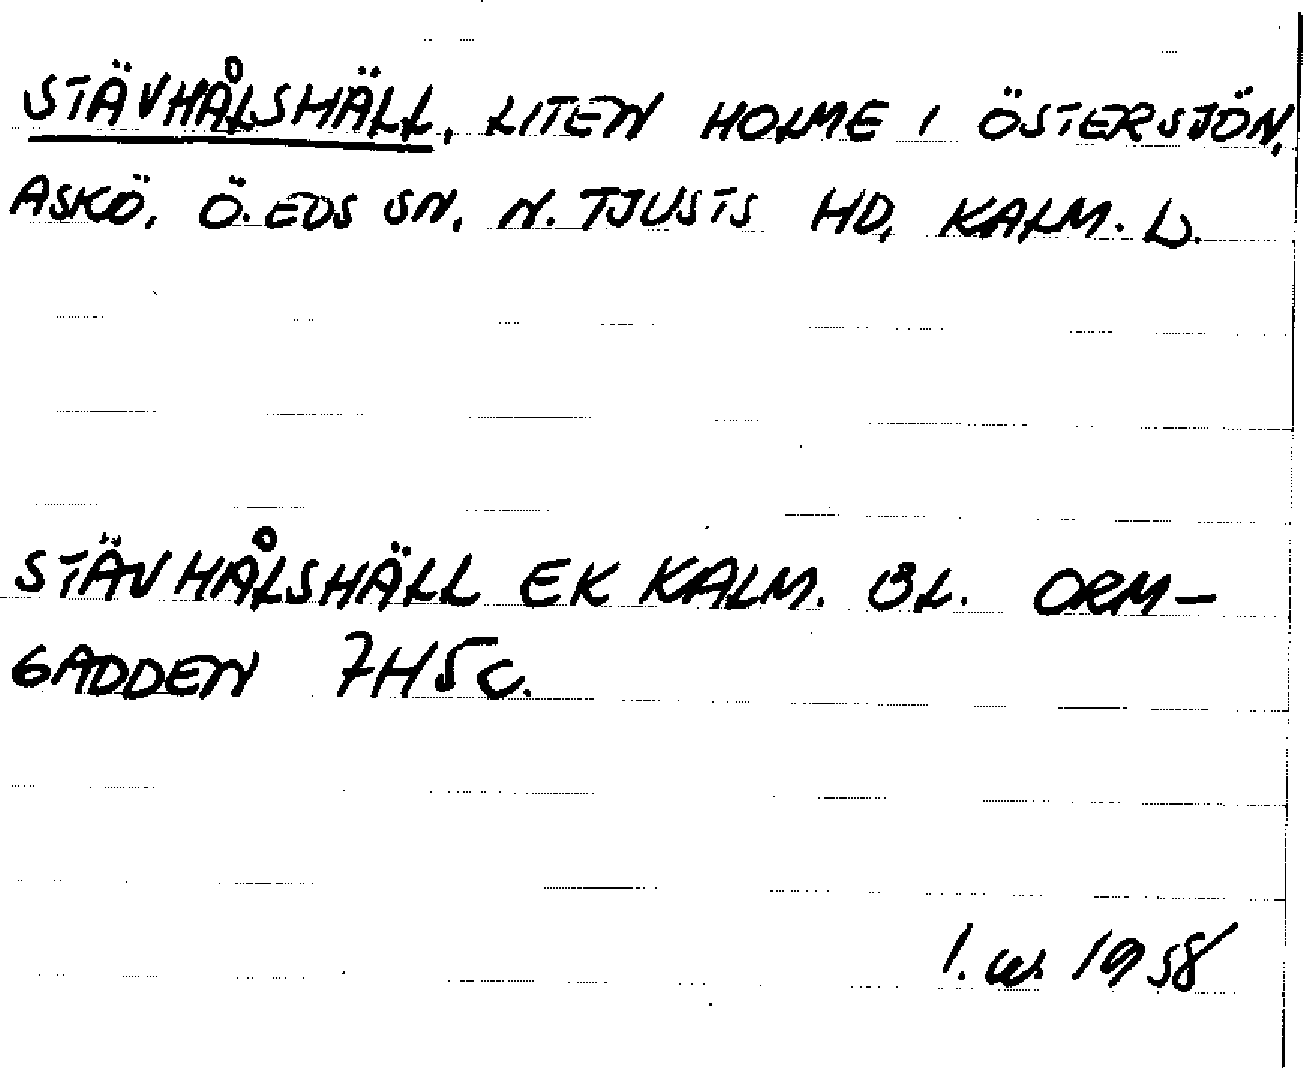 STÄVHÅLSHÄLL, LITEN HOLME I ÖSTERSJÖN,
ASKÖ, Ö. EDS SN, N. TJUSTS HD, KALM. L.
STÄVHÅLSHÄLL EK KALM. BL. ORM-
GADDEN 7H5c.
1958